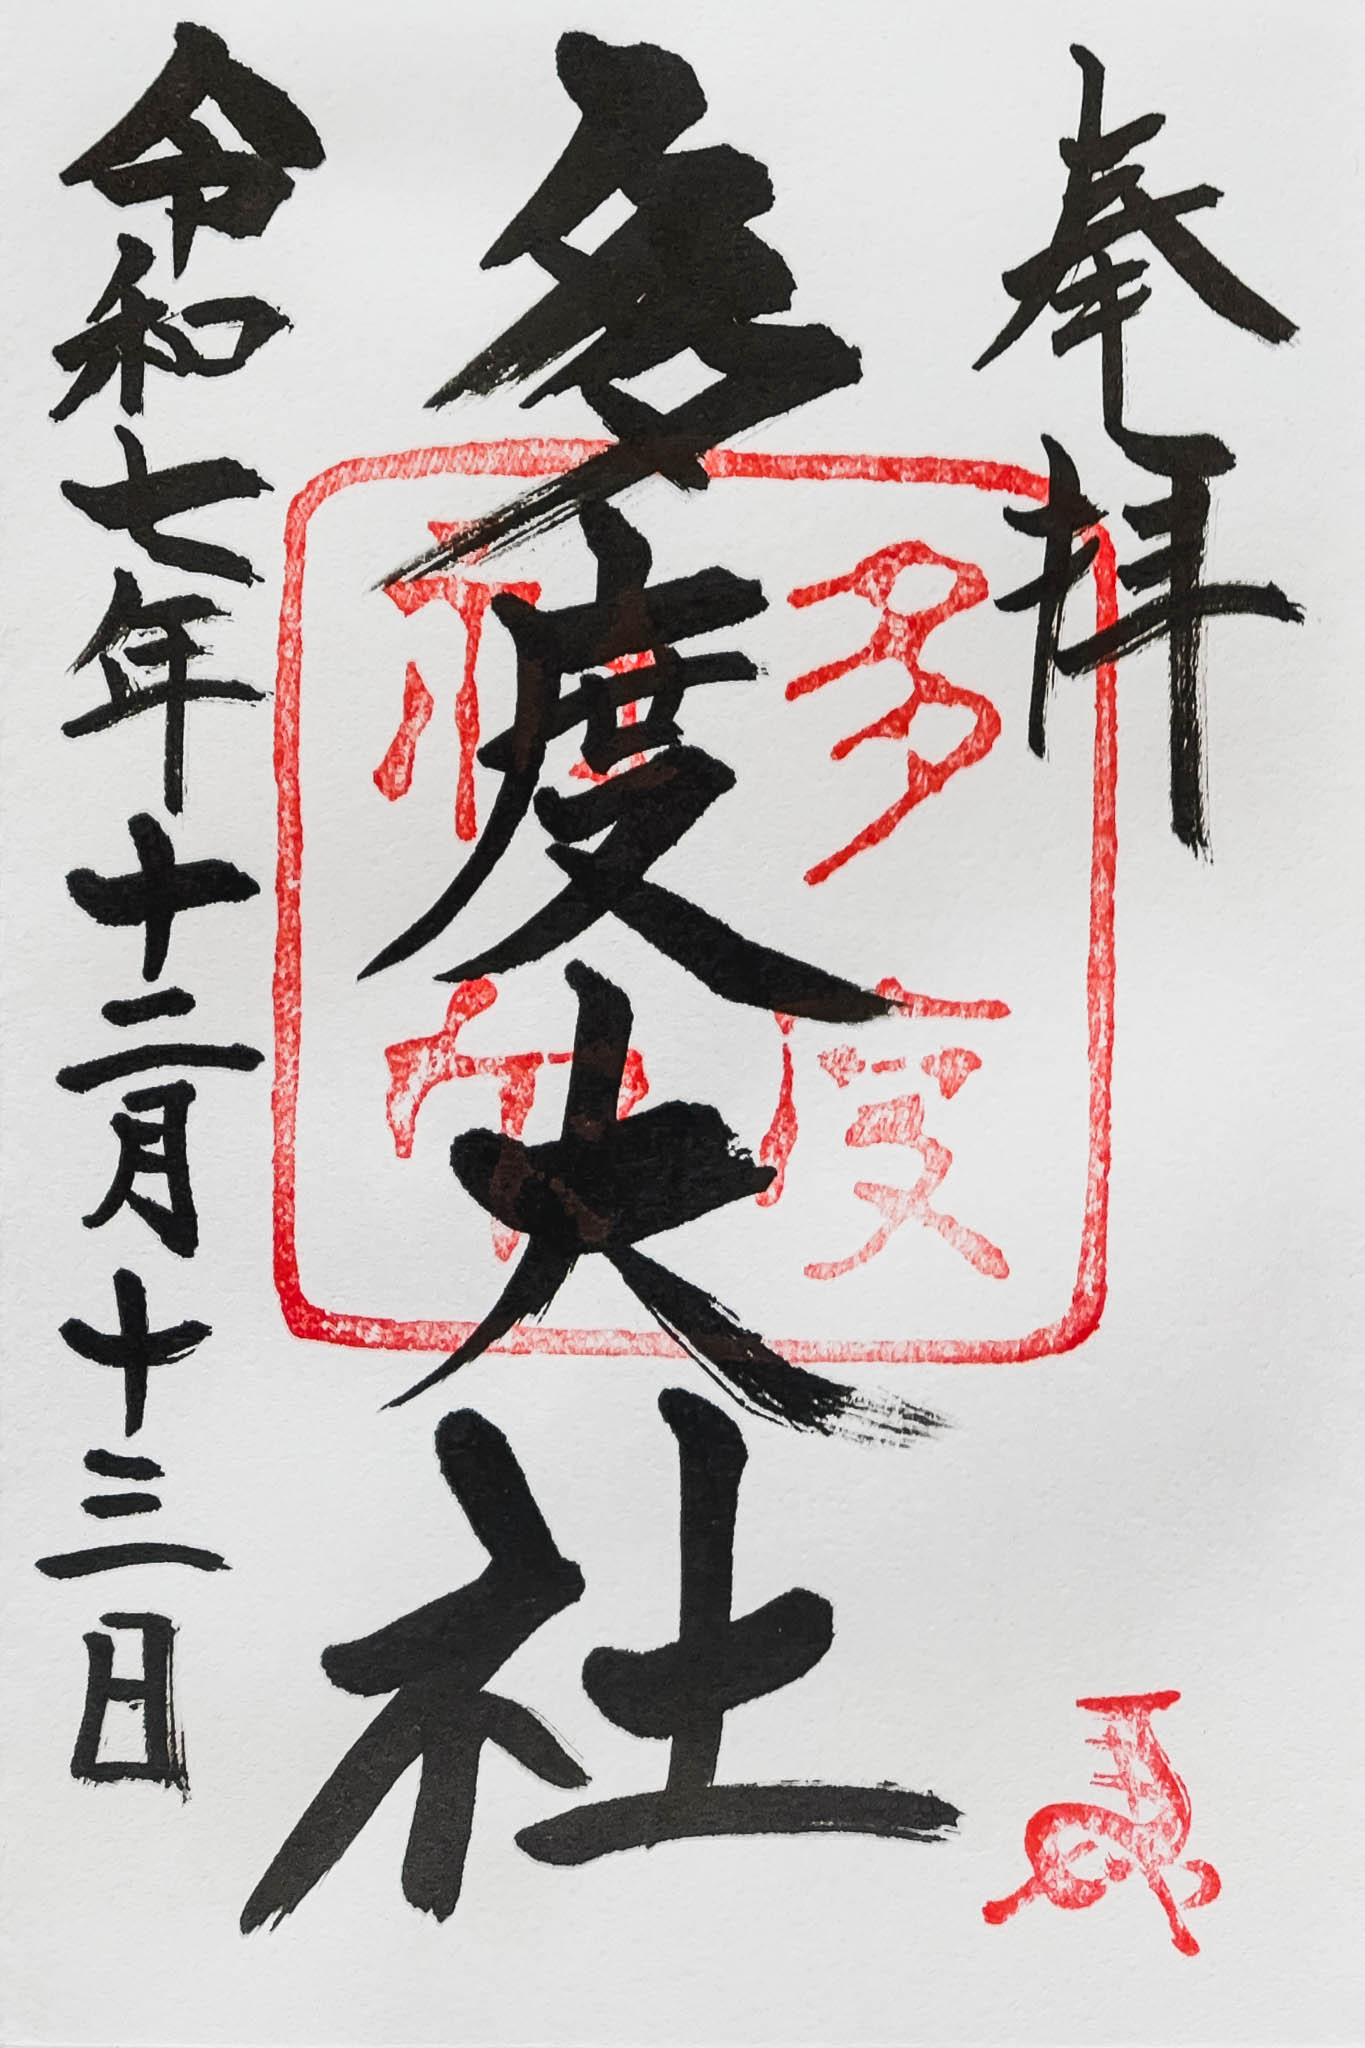 奉拝
多度大社
多度
神社
令和七年十二月十三日